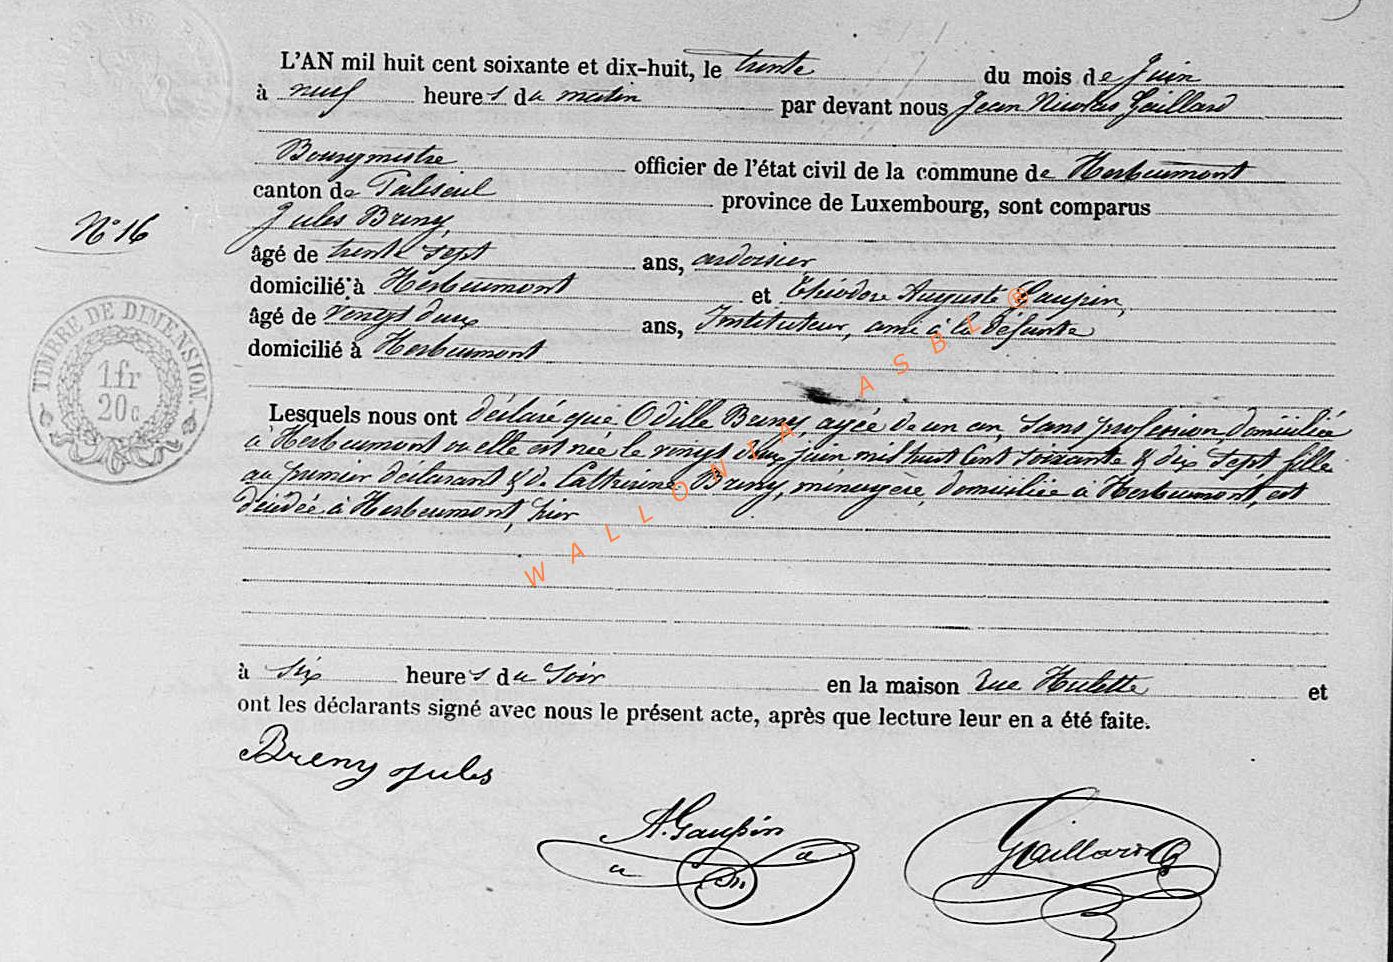 L'AN mil huit cent soixante et dix-huit, le trente du mois de Juin
à neuf heures du matin par devant nous Jean Nicolas Gaillard
Bourgmestre officier de l'état civil de la commune de Herbeumont
canton de Paliseul province de Luxembourg, sont comparus
Jules Breny,
N° 16
âgé de trente sept ans, ardoisier
domicilié à Herbeumont et Théodore Auguste Gaupin,
âgé de vingt deux ans, Instituteur, ami à la défunte
domicilié à Herbeumont
TIMBRE DE DIMENSION.
1 fr
20 c
Lesquels nous ont déclaré que Odille Breny, agée de un an, sans profession, domiciliée
à Herbeumont ou elle est née le vingt deux juin mil huit cent soixante & dix sept, fille
au premier déclarant & de Catherine Breny, ménagère, domiciliée à Herbeumont, est
décédée à Herbeumont, hier
à six heures du soir en la maison rue Hulette et
ont les déclarants signé avec nous le présent acte, après que lecture leur en a été faite.
Breny jules
A. Gaupin
Gaillard
WALLONIA ASBL ®